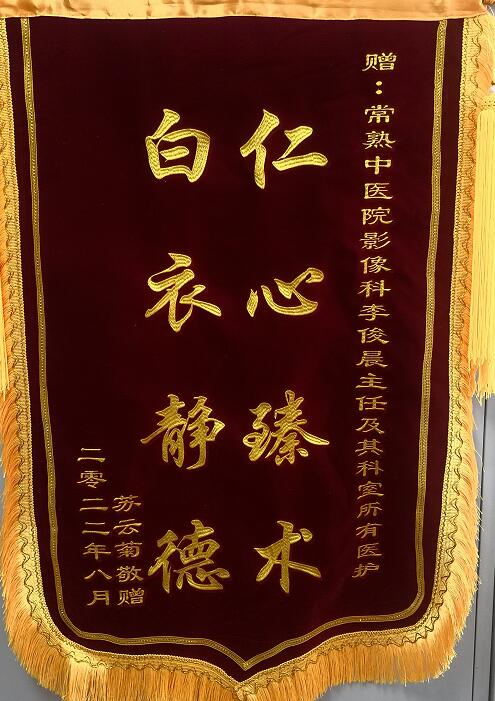 赠：常熟中医院影像科李俊晨主任及其科室所有医护
仁心臻术
白衣静德
苏云菊敬赠
二零二二年八月